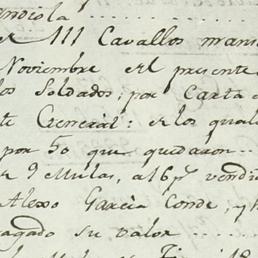 andiola
111 Cavallos mans
Noviembre el presente
los Soldados, por Carta
te General: de los qual
por 50 que quedaron
9 Mulas, a 16 p vendi
Alexo Garcia Conde, y
agado su valor